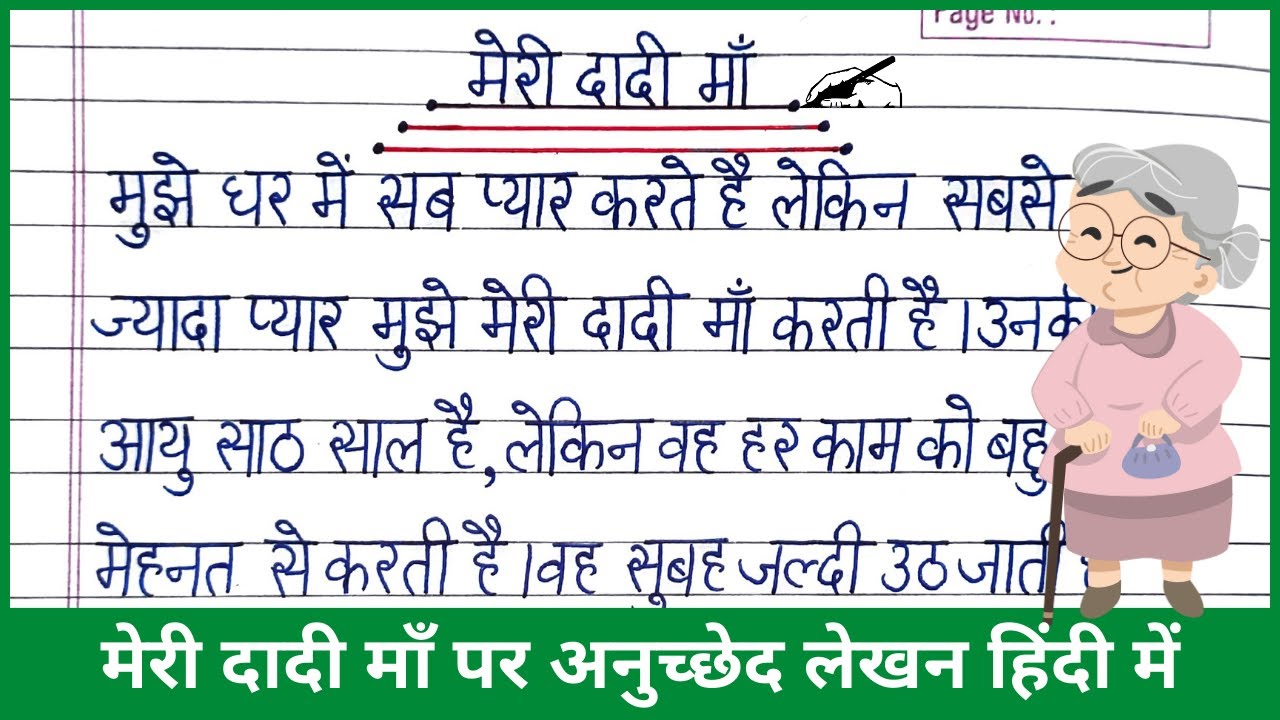 Page No. :
मेरी दादी माँ
मुझे घर में सब प्यार करते है लेकिन सबसे
ज्यादा प्यार मुझे मेरी दादी माँ करती है । उनकी
आयु साठ साल है, लेकिन वह हर काम को बहु
मेहनत से करती है । वह सूबह जल्दी उठ जाती
मेरी दादी माँ पर अनुच्छेद लेखन हिंदी में